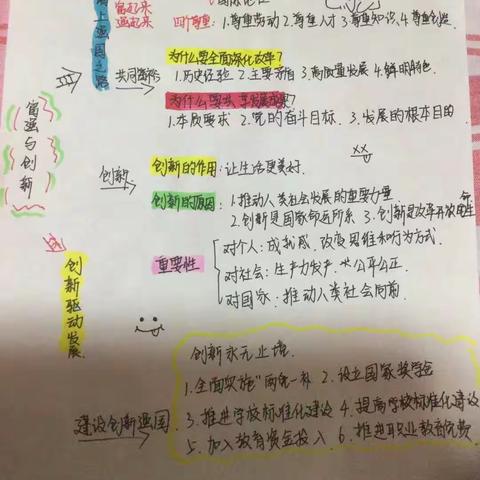 富起来
强起来
踏上强国之路
四个尊重：1.尊重劳动 2.尊重人才 3.尊重知识 4.尊重创造
为什么要全面深化改革？
共同富裕
1.历史经验 2.主要矛盾 3.高质量发展 4.鲜明特色
为什么要共享发展成果？
1.本质要求 2.党的奋斗目标 3.发展的根本目的
富强与创新
创新
创新的作用：让生活更美好
创新的原因：1.推动人类社会发展的重要力量
2.创新是国家命运所系 3.创新是改革开放的生命
重要性
对个人：成就感、改变思维和行为方式
对社会：生产力发产、公平公正
对国家：推动人类社会向前
创新驱动发展
创新永无止境
建设创新强国
1.全面实施"两免一补 2.设立国家奖学金
3.推进学校标准化建设 4.提高学校标准化建设
5.加入教育资金投入 6.推进职业教育免费